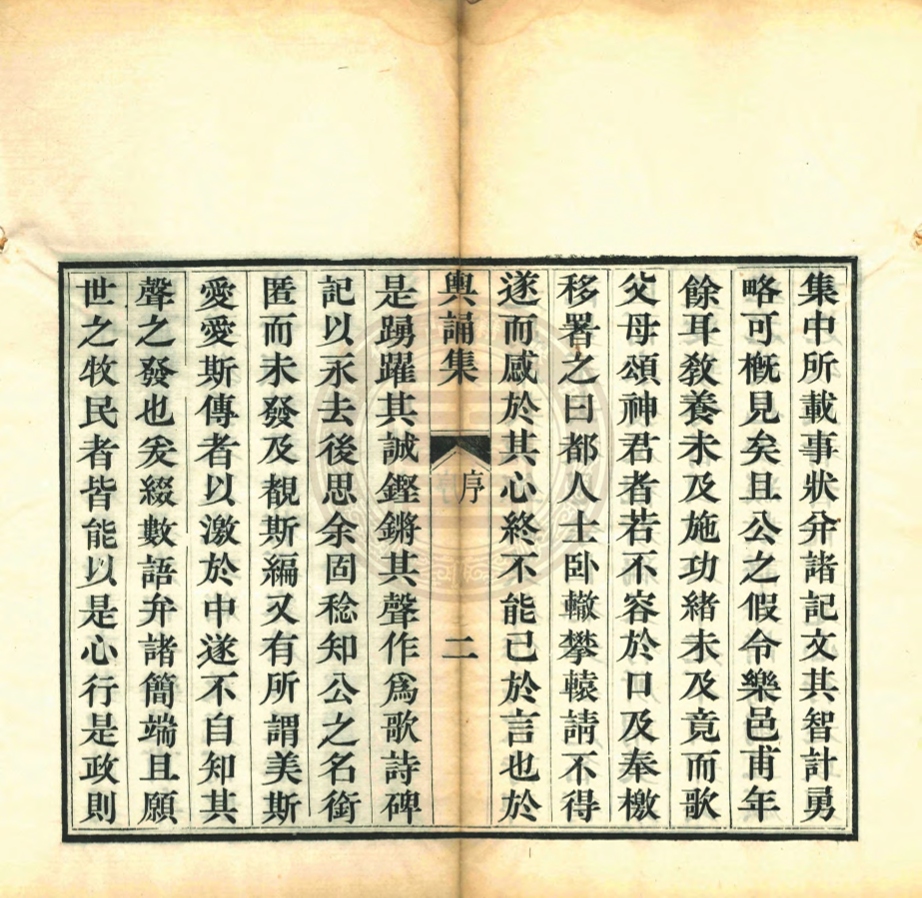 集中所載事狀弁諸記文其智計勇
略可概見矣且公之假令樂邑甫年
餘耳敎養未及施功緒未及竟而歌
父母頌神君者若不容於口及奉檄
移署之日都人士卧轍攀轅請不得
遂而感於其心終不能已於言也於
輿誦集 序 二
是踴躍其誠鏗鏘其聲作爲歌詩碑
記以永去後思余固稔知公之名銜
匿而未發及覩斯編又有所謂美斯
愛愛斯傳者以激於中遂不自知其
聲之發也爰綴數語弁諸簡端且願
世之牧民者皆能以是心行是政則